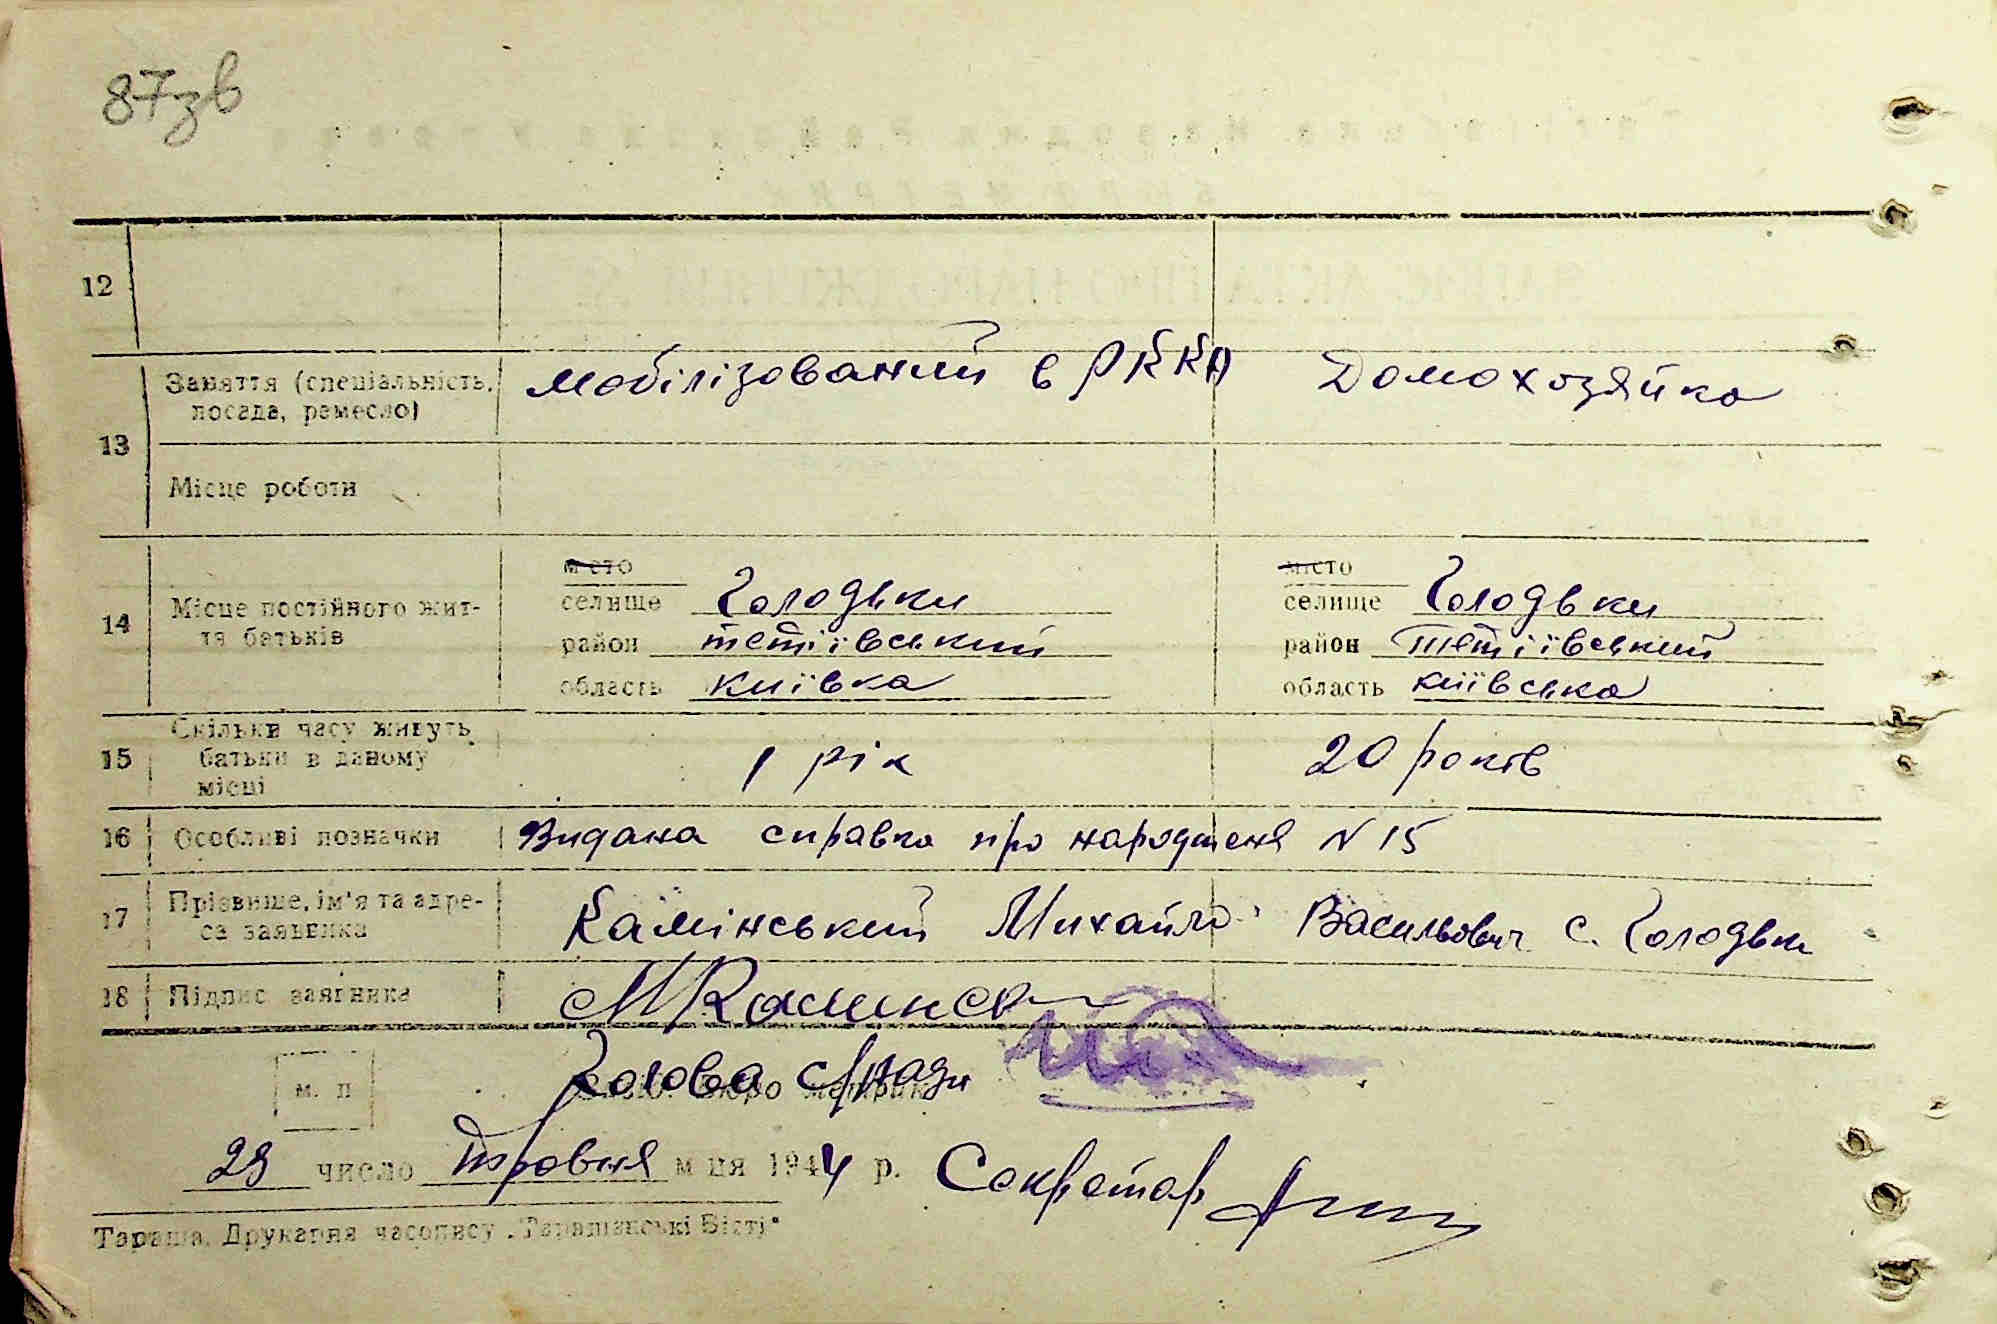 87зв
12
13 Заняття (спеціальність, посада, ремесло) мобілізований в РККА Домохозяйка
Місце роботи
14 Місце постійного життя батьків
місто місто
селище Голодьки селище Голодьки
район тетіївський район Тетіївський
область київка область київська
15 Скільки часу живуть батьки в даному місці 1 рік 20 років
16 Особливі позначки Видана справка про народженя N 15
17 Прізвище, ім'я та адреса заявника Камінський Михайло Васильович с. Голодьки
18 Підпис заявника МКаминск
м. п Голова с/ради
23 число травня м ця 1944 р. Секретар
Тараща, Друкарня часопису „Таращанські Вісті"